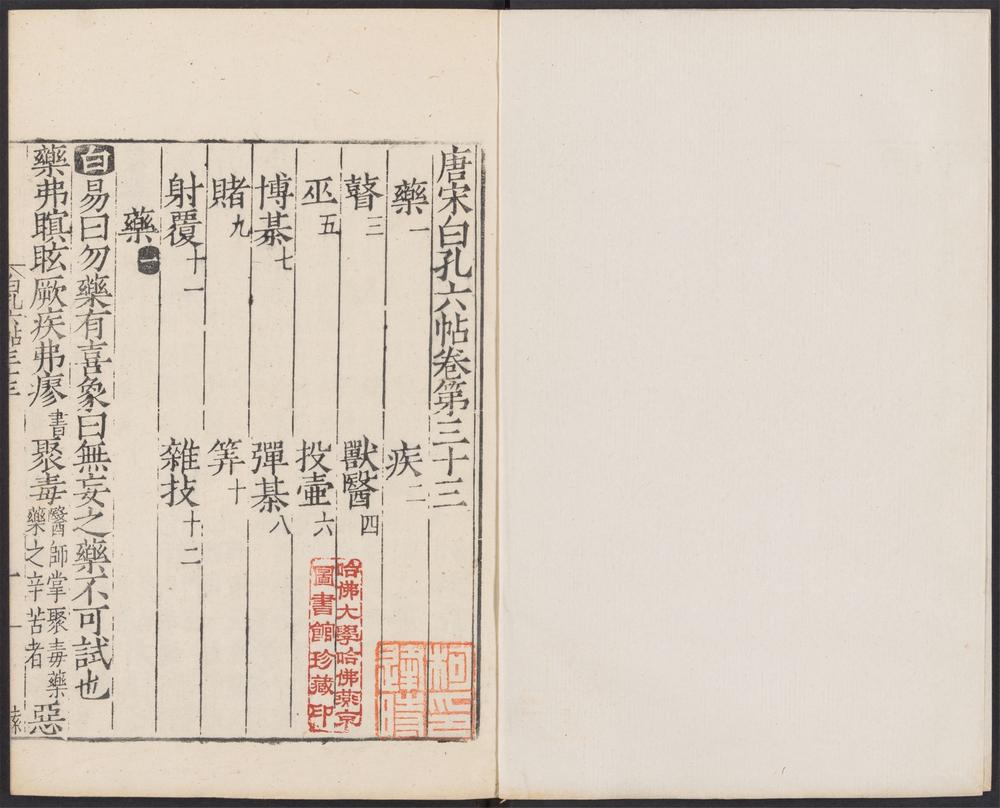 唐宋白孔六帖卷第三十三
藥一 疾二
瞽三 獸醫四
巫五 投壺六
博棊七 彈棊八
賭九 筭十
射覆十一 雜技十二
藥一
白易曰勿藥有喜象曰無妄之藥不可試也
藥弗瞑眩厥疾弗瘳書聚毒醫師掌聚毒藥藥之辛苦者惡
白孔六帖三十三
一
哈佛大學哈佛燕京
圖書館珍藏印